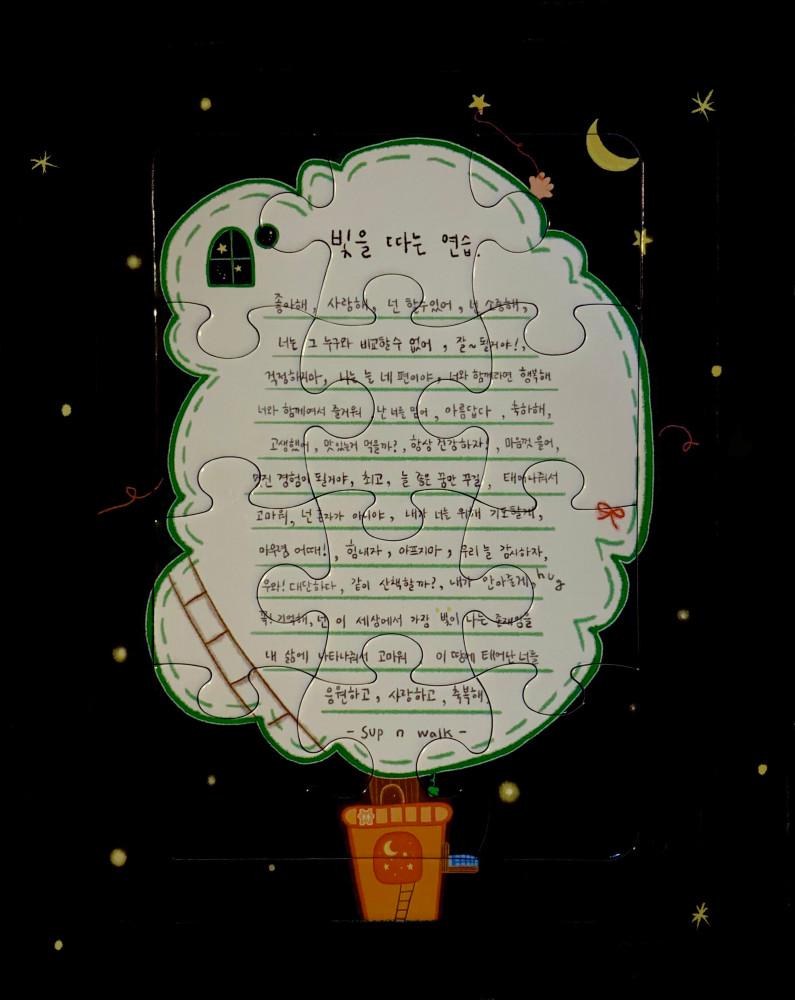 빛을 따는 연습.
좋아해, 사랑해, 넌 할수있어, 넌 소중해,
너는 그 누구와 비교할수 없어, 잘~ 될거야!,
걱정하지마, 나는 늘 네 편이야, 너와 함께라면 행복해
너와 함께여서 즐거워, 난 너를 믿어, 아름답다, 축하해,
고생했어, 맛있는거 먹을까?, 항상 건강하자!, 마음껏 울어,
멋진 경험이 될거야, 최고, 늘 좋은 꿈만 꾸길, 태어나줘서
고마워, 넌 혼자가 아니야, 내가 너를 위해 기도할게,
아무렴 어때!, 힘내자, 아프지마, 우리 늘 감사하자,
우와! 대단하다, 같이 산책할까?, 내가 안아줄게, hug
꼭! 기억해, 넌 이 세상에서 가장 빛이 나는 존재임을
내 삶에 나타나줘서 고마워 이 땅에 태어난 너를
응원하고, 사랑하고, 축복해.
- Sup n walk -